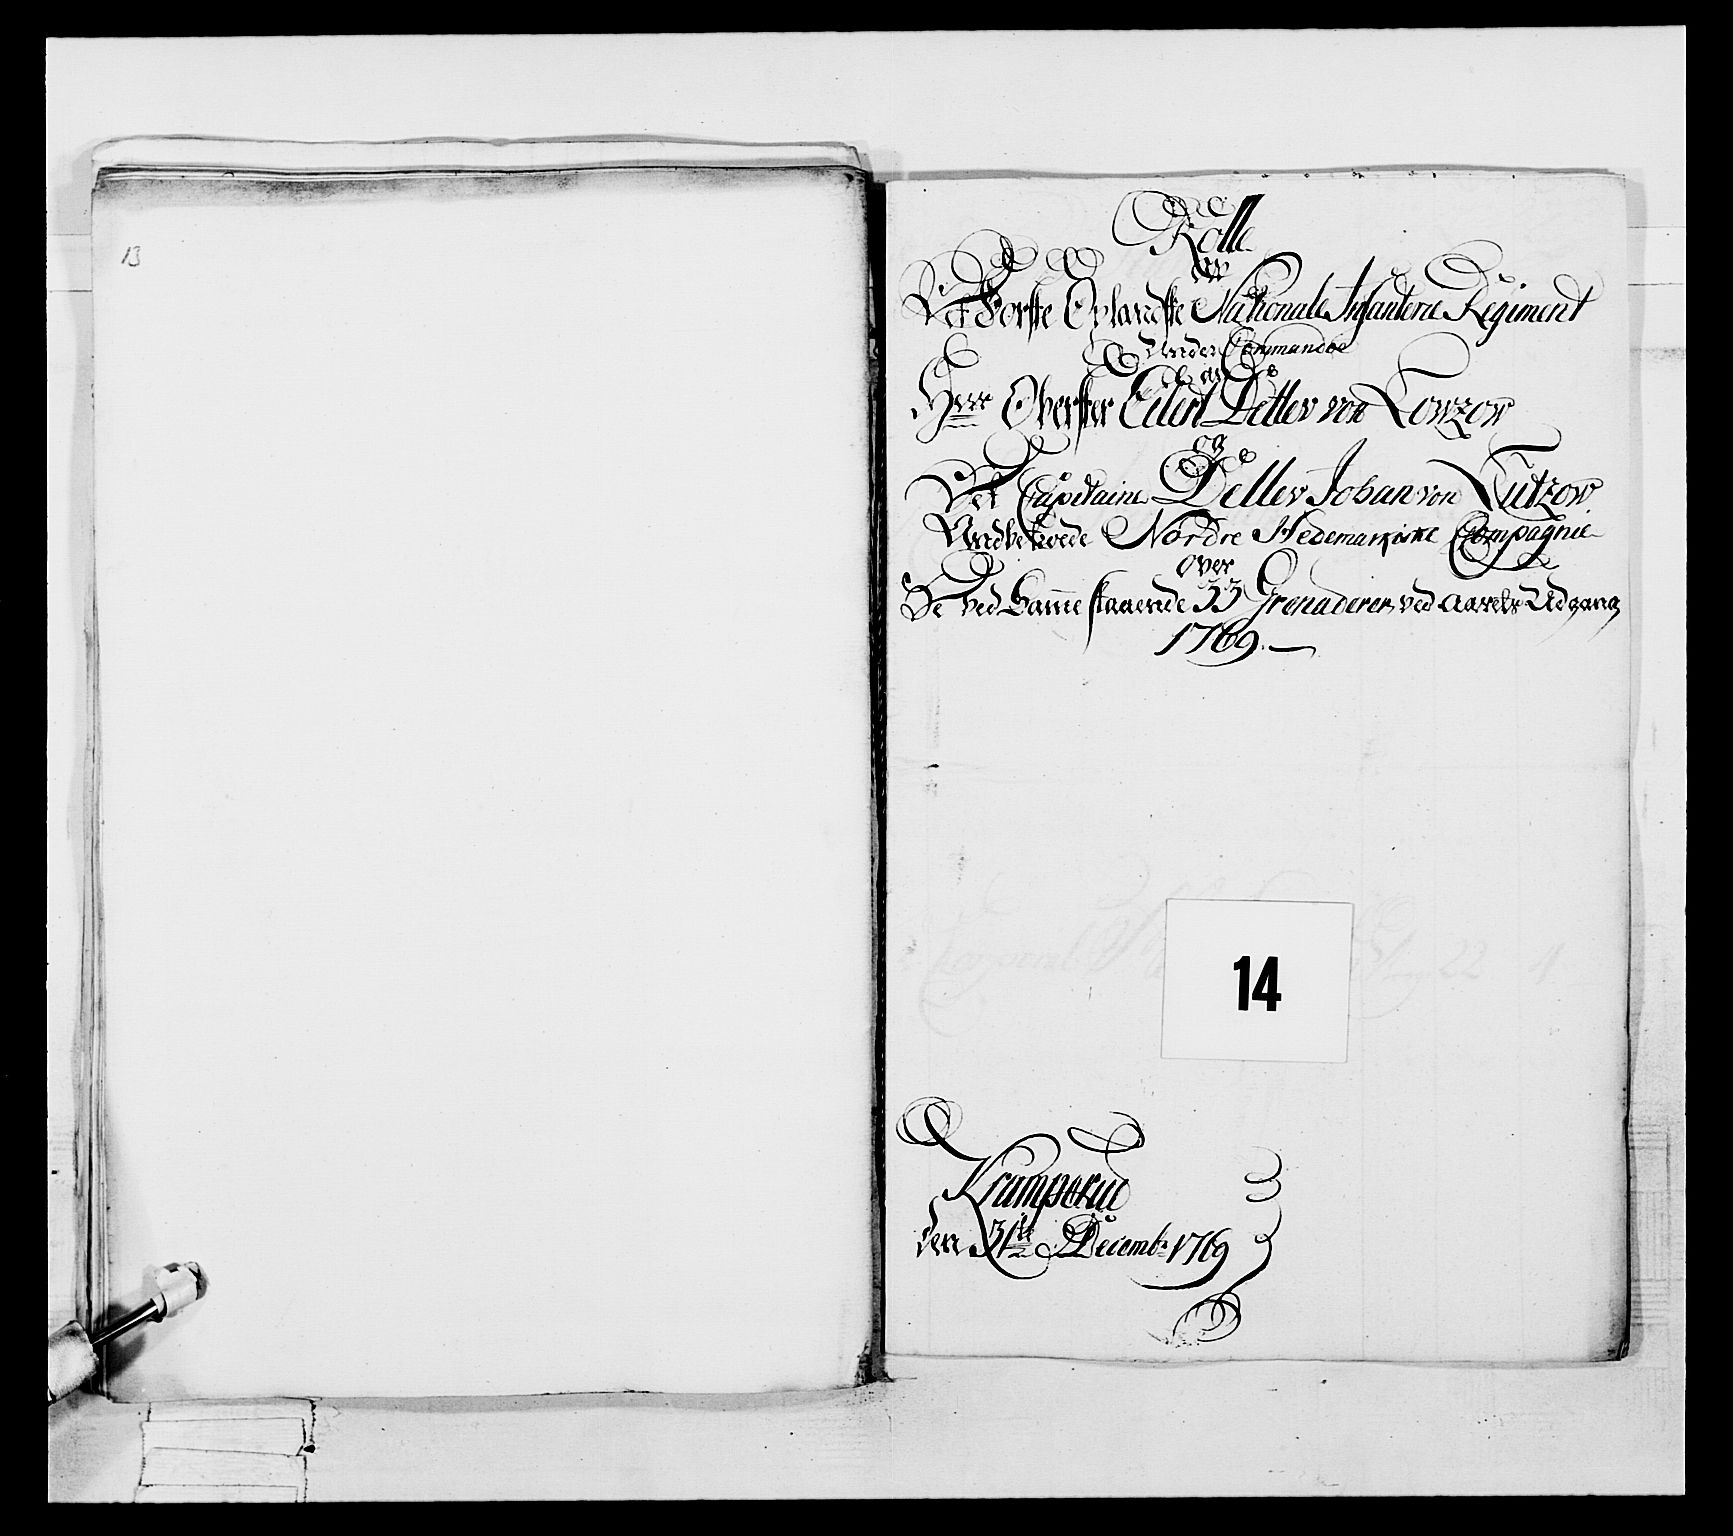 13
Rolle
ved
Det Førske Oplandske Nationale Infanterie Regiment
Under Commando
av
Herr Oberster Eilert Detlev von Lowzow
og
Det Capitaine Detlev Johan von Lützow
Nordre Hedemarkiske Compagnie
Over
De ved Samme staaende 33 Grenaderer ved Aarets Udgang
1769.
14
Kramperud
den 31te Decembr 1769